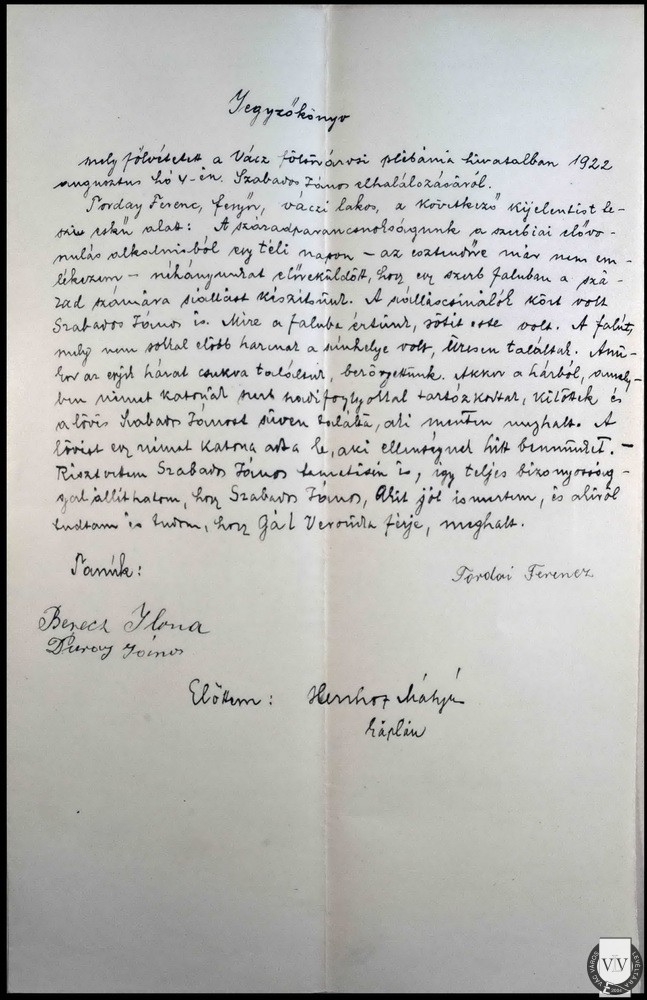 Jegyzőkönyv
mely fölvétetett a Vácz fölsővárosi plébánia hivatalban 1922
augusztus hó 4-én. Szabados János elhalálozásáról.
Torday Ferenc, fegyőr, váczi lakos, a következő kijelentést te-
szi eskü alatt: A századparancsnokságunk a szerbiai elővo-
nulás alkalmából egy téli napon – az esztendőre már nem em-
lékezem – néhányunkat előreküldött, hogy egy szerb faluban a szá-
zad számára szállást készítsünk. A szálláscsinálók közt volt
Szabados János is. Mire a faluba értünk, sötét este volt. A falut,
mely nem sokkal előbb harcnak a színhelye volt, üresen találtuk. Ami-
kor az egyik házat csukva találtuk, bezörgettünk. Akkor a házból, amely-
ben német katonák szerb hadifoglyokkal tartózkodtak, kilőttek és
a lövés Szabados Jánost szíven találta, aki menten meghalt. A
lövést egy német katona adta le, aki ellenségnek hitt bennünket. –
Résztvettem Szabados János temetésén is, így teljes bizonyosság-
gal állíthatom, hogy Szabados János, akit jól ismertem, és akiről
tudtam és tudom, hogy Gál Veronka férje, meghalt.
Tanúk:
Tordai Ferencz
Berecz Ilona
János
Előttem: Mátyás
káplán
VÁC VÁROS LEVÉLTÁRA